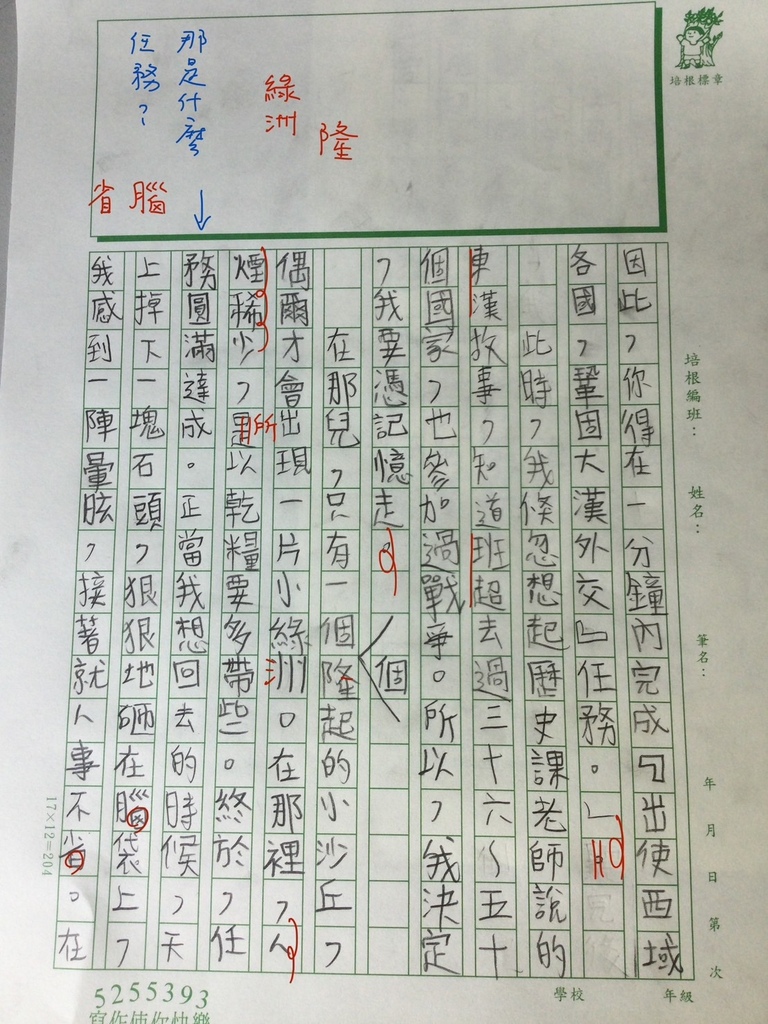 那是什麼
任務？
綠洲
隆
腦
省
培根標章
培根編班：
姓名：
筆名：
年 月 日 第 次
因此，你得在一分鐘內完成『出使西域
各國，鞏固大漢外交』任務。」
此時，我倏忽想起歷史課老師說的
東漢故事，知道班超去過三十六～五十
個國家，也參加過戰爭。所以，我決定
，我要憑記憶走。
個
在那兒，只有一個隆起的小沙丘，
偶爾才會出現一片小綠洲。在那裡，人
煙稀少，所以乾糧要多帶些。終於，任
務圓滿達成。正當我想回去的時候，天
上掉下一塊石頭，狠狠地砸在腦袋上，
我感到一陣暈眩，接著就人事不省。在
17×12=204
5255393
寫作使你快樂
學校
年級